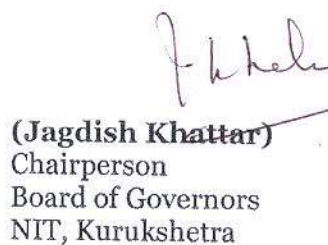 (Jagdish Khattar)
Chairperson
Board of Governors
NIT, Kurukshetra